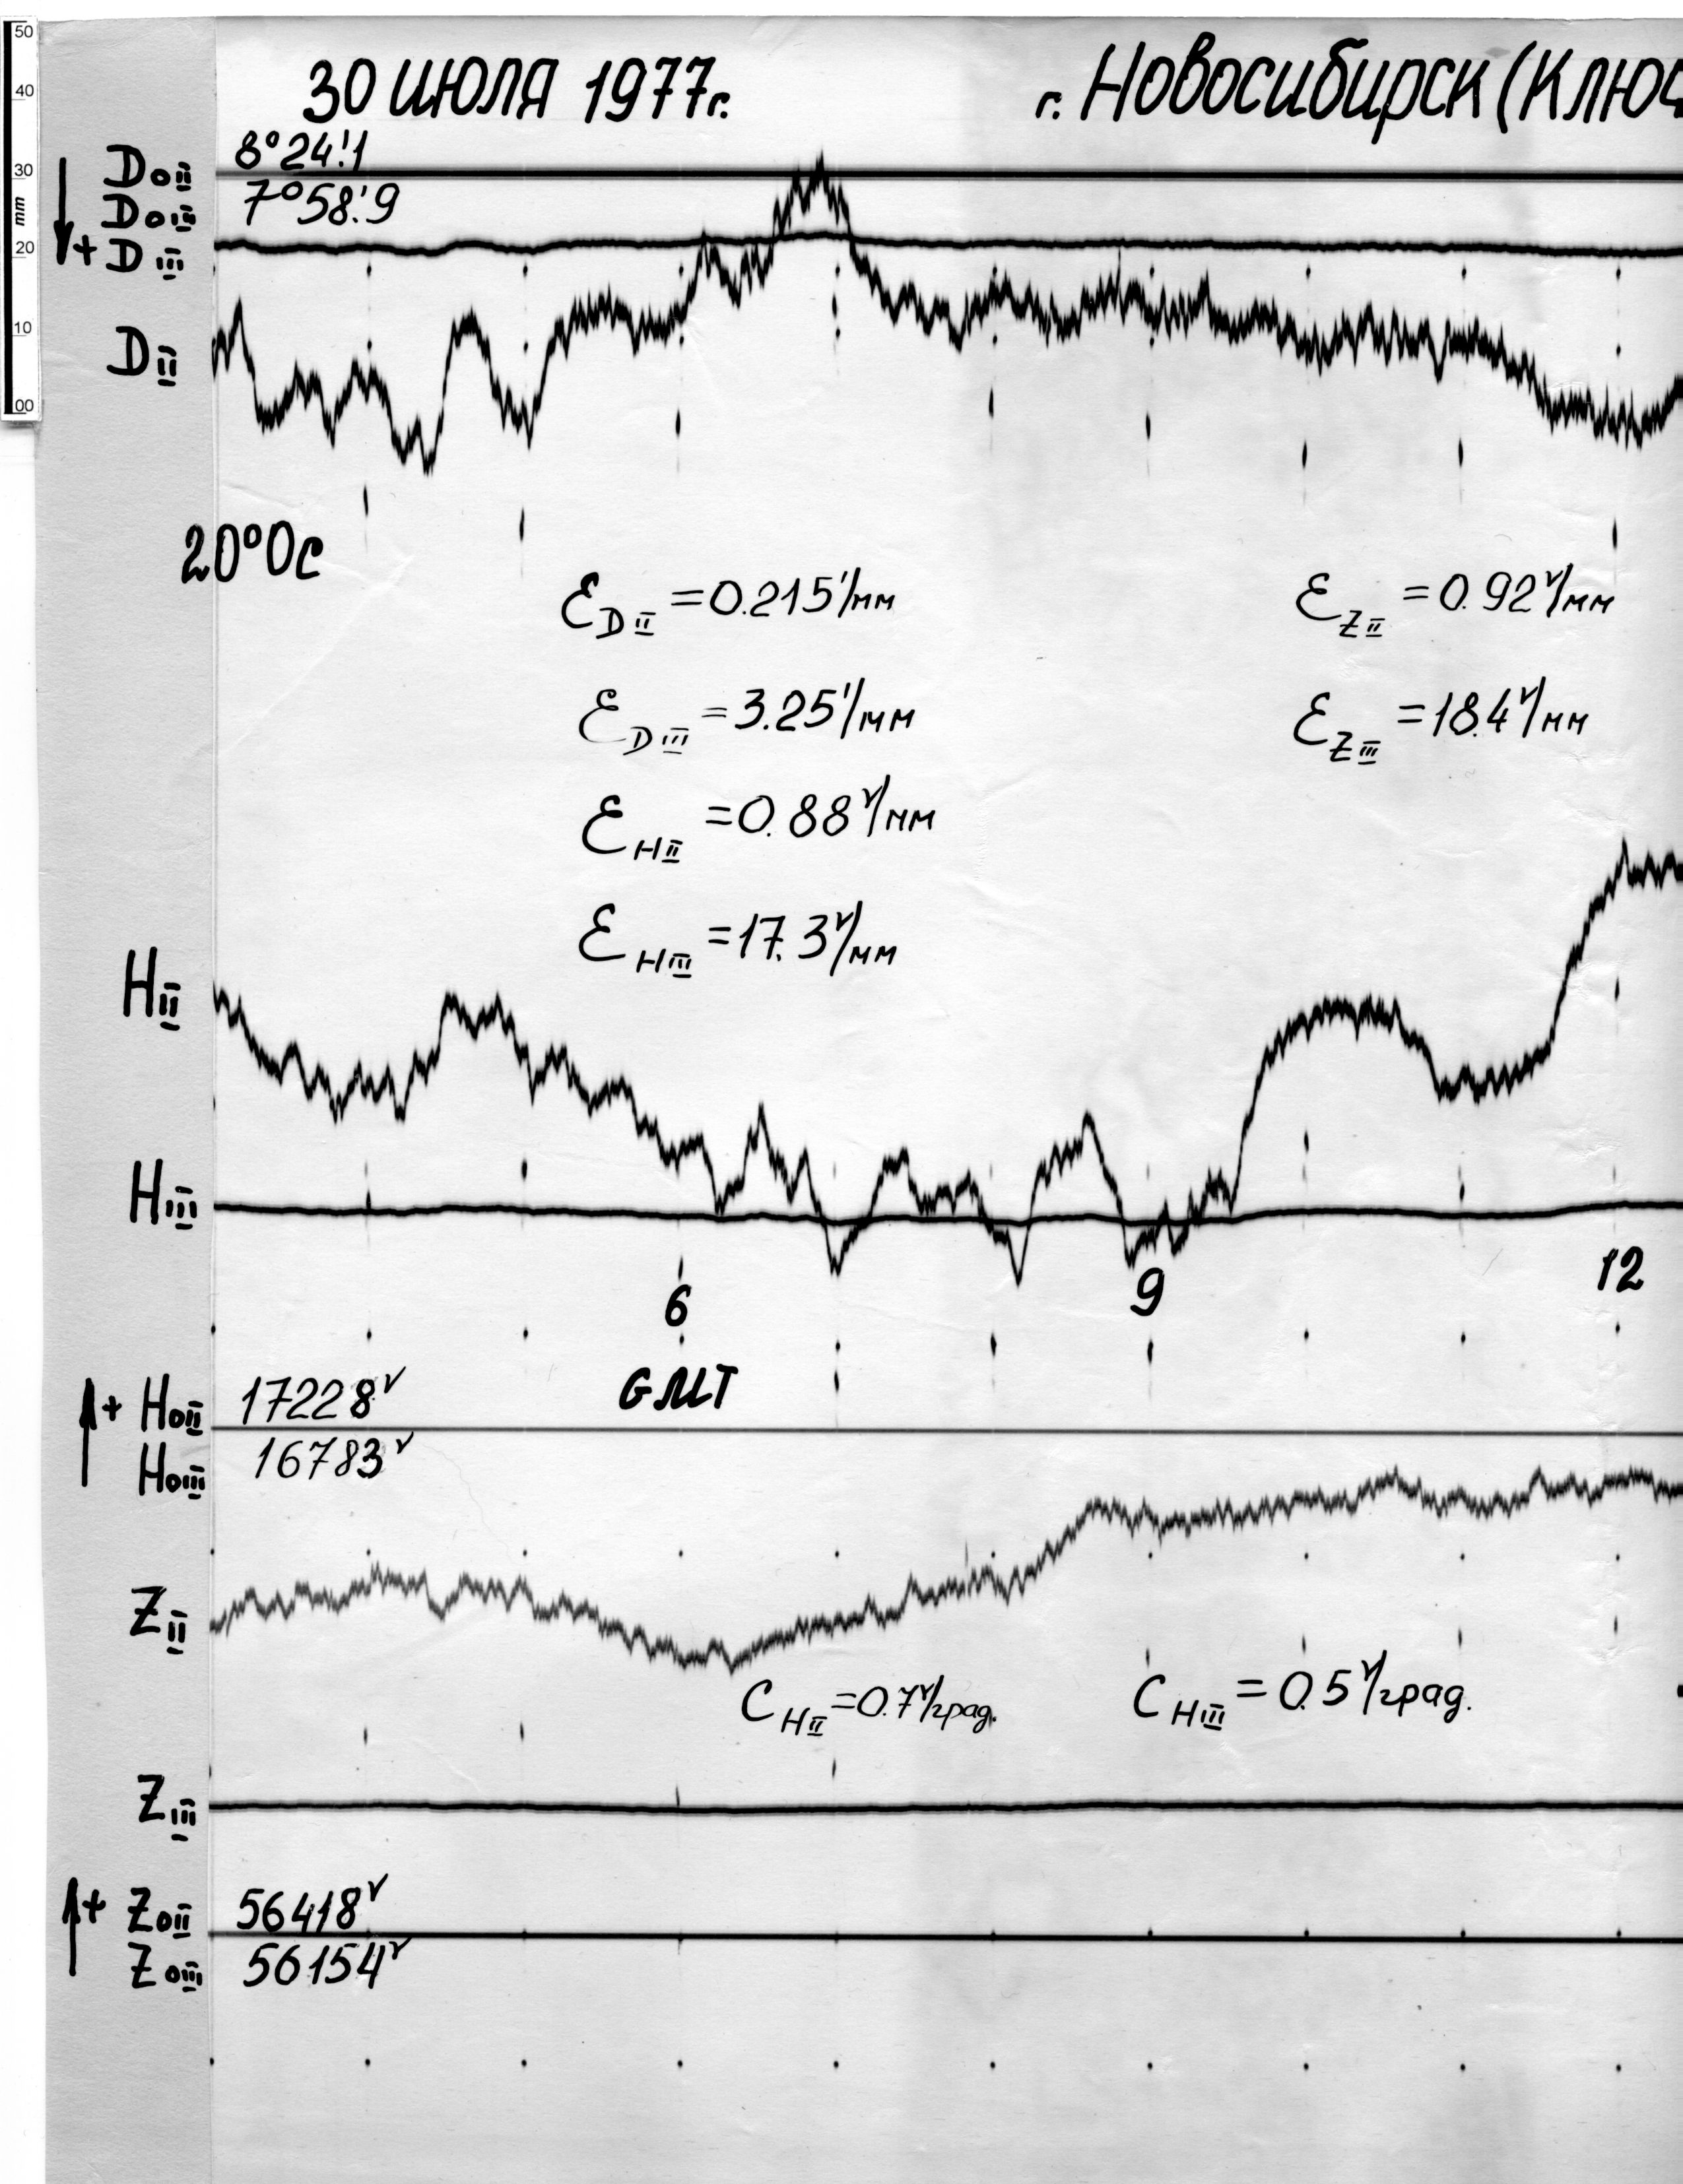 50
40
30
mm
20
10
00
30 июля 1977г.
г. Новосибирск (Ключ
DoII 8°24!1
DoIII 7°58!9
+ DIII
DII
20°0c
ƐDII = 0.215'/мм
ƐZII = 0.92γ/мм
ƐDIII = 3.25'/мм
ƐZIII = 18.4γ/мм
ƐHII = 0.88γ/мм
ƐHIII = 17.3γ/мм
HII
HIII
6 9 12
GMT
+ HoII 17228γ
HoIII 16783γ
ZII
CHII = 0.7γ/град.
CHIII = 0.5γ/град.
ZIII
+ ZoII 56418γ
ZoIII 56154γ